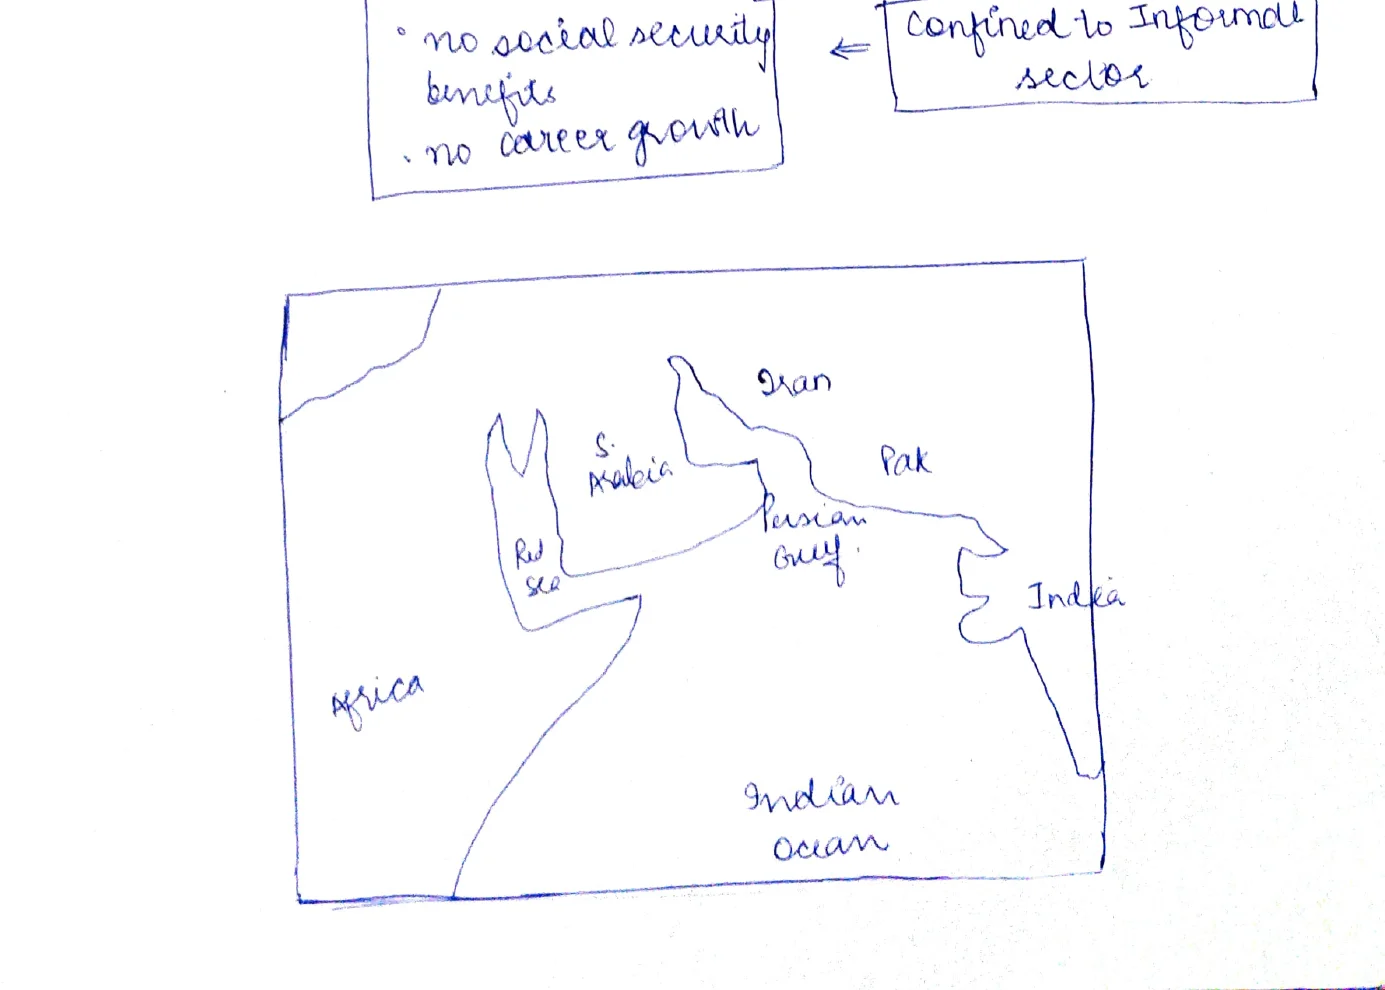 • no social security
benefits
• no career growth
⇐
Confined to Informal
sector
Iran
Pak
S.
Arabia
Persian
Gulf.
Red
Sea
India
Africa
Indian
Ocean